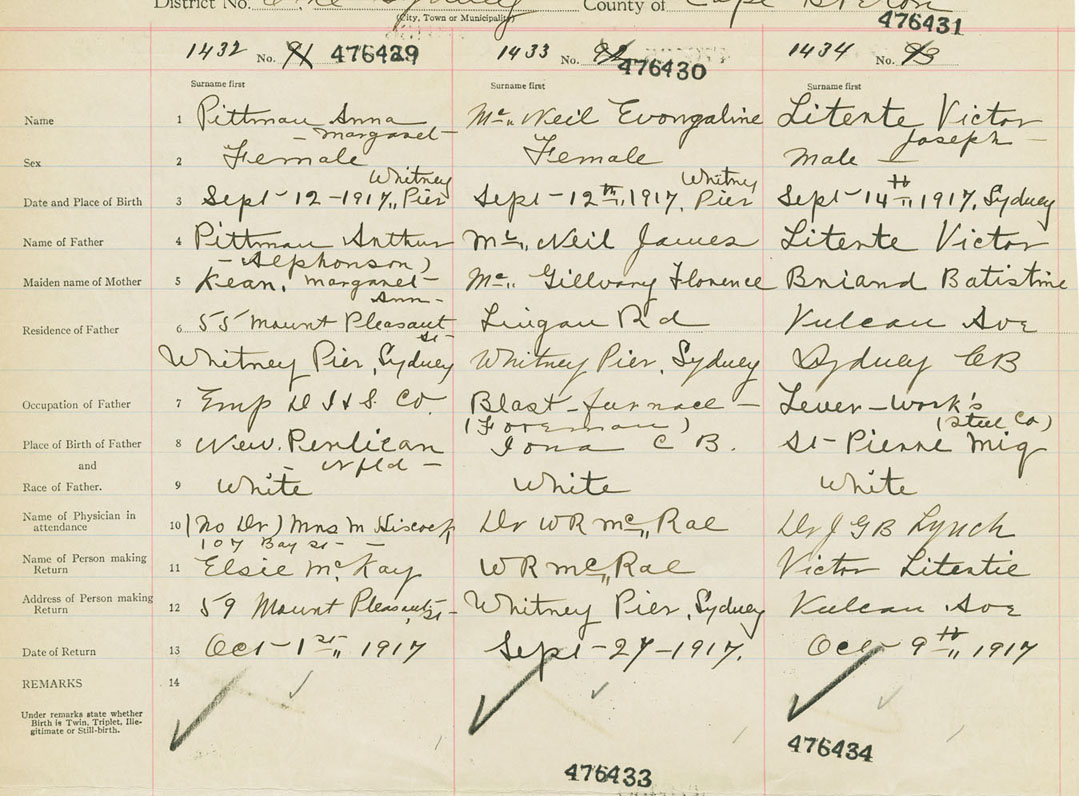 District No. One Sydney County of Cape Breton
(City, Town or Municipality)
476431
1432 No. 91 476429 1433 No. 92 476430 1434 No. 93
Surname first Surname first Surname first
Name 1 Pittman Anna Mc Neil Evongaline Litente Victor
- Margaret - Joseph -
Sex 2 Female Female Male -
Whitney Whitney
Date and Place of Birth 3 Sept - 12 - 1917, Pier Sept - 12th, 1917, Pier Sept - 14th, 1917, Sydney
Name of Father 4 Pittman Arthur Mc Neil James Litente Victor
- Alphonson)
Maiden name of Mother 5 Kean, Margaret - Mc Gillvary Florence Briand Batistine
Ann -
Residence of Father 6 55 Mount Pleasant Lingan Rd Vulcan Ave
St -
Whitney Pier, Sydney Whitney Pier, Sydney Sydney CB
Occupation of Father 7 Emp D I & S. Co. Blast - furnace - Lever - Work's
(Foreman) (Steel Co)
Place of Birth of Father 8 New. Perlican Iona C B. St - Pierre Miq
and - Nfld -
Race of Father. 9 White White White
Name of Physician in
attendance 10 (No Dr) Mrs M Hiscock Dr W R McRae Dr J G B Lynch
107 Bay St - -
Name of Person making
Return 11 Elsie McKay W R McRae Victor Litentie
Address of Person making
Return 12 59 Mount Pleasant St - Whitney Pier, Sydney Vulcan Ave
Date of Return 13 Oct - 1st, 1917 Sept - 27 - 1917. Oct 9th, 1917
REMARKS 14
Under remarks state whether
Birth is Twin, Triplet, Ille-
gitimate or Still-birth.
476434
476433